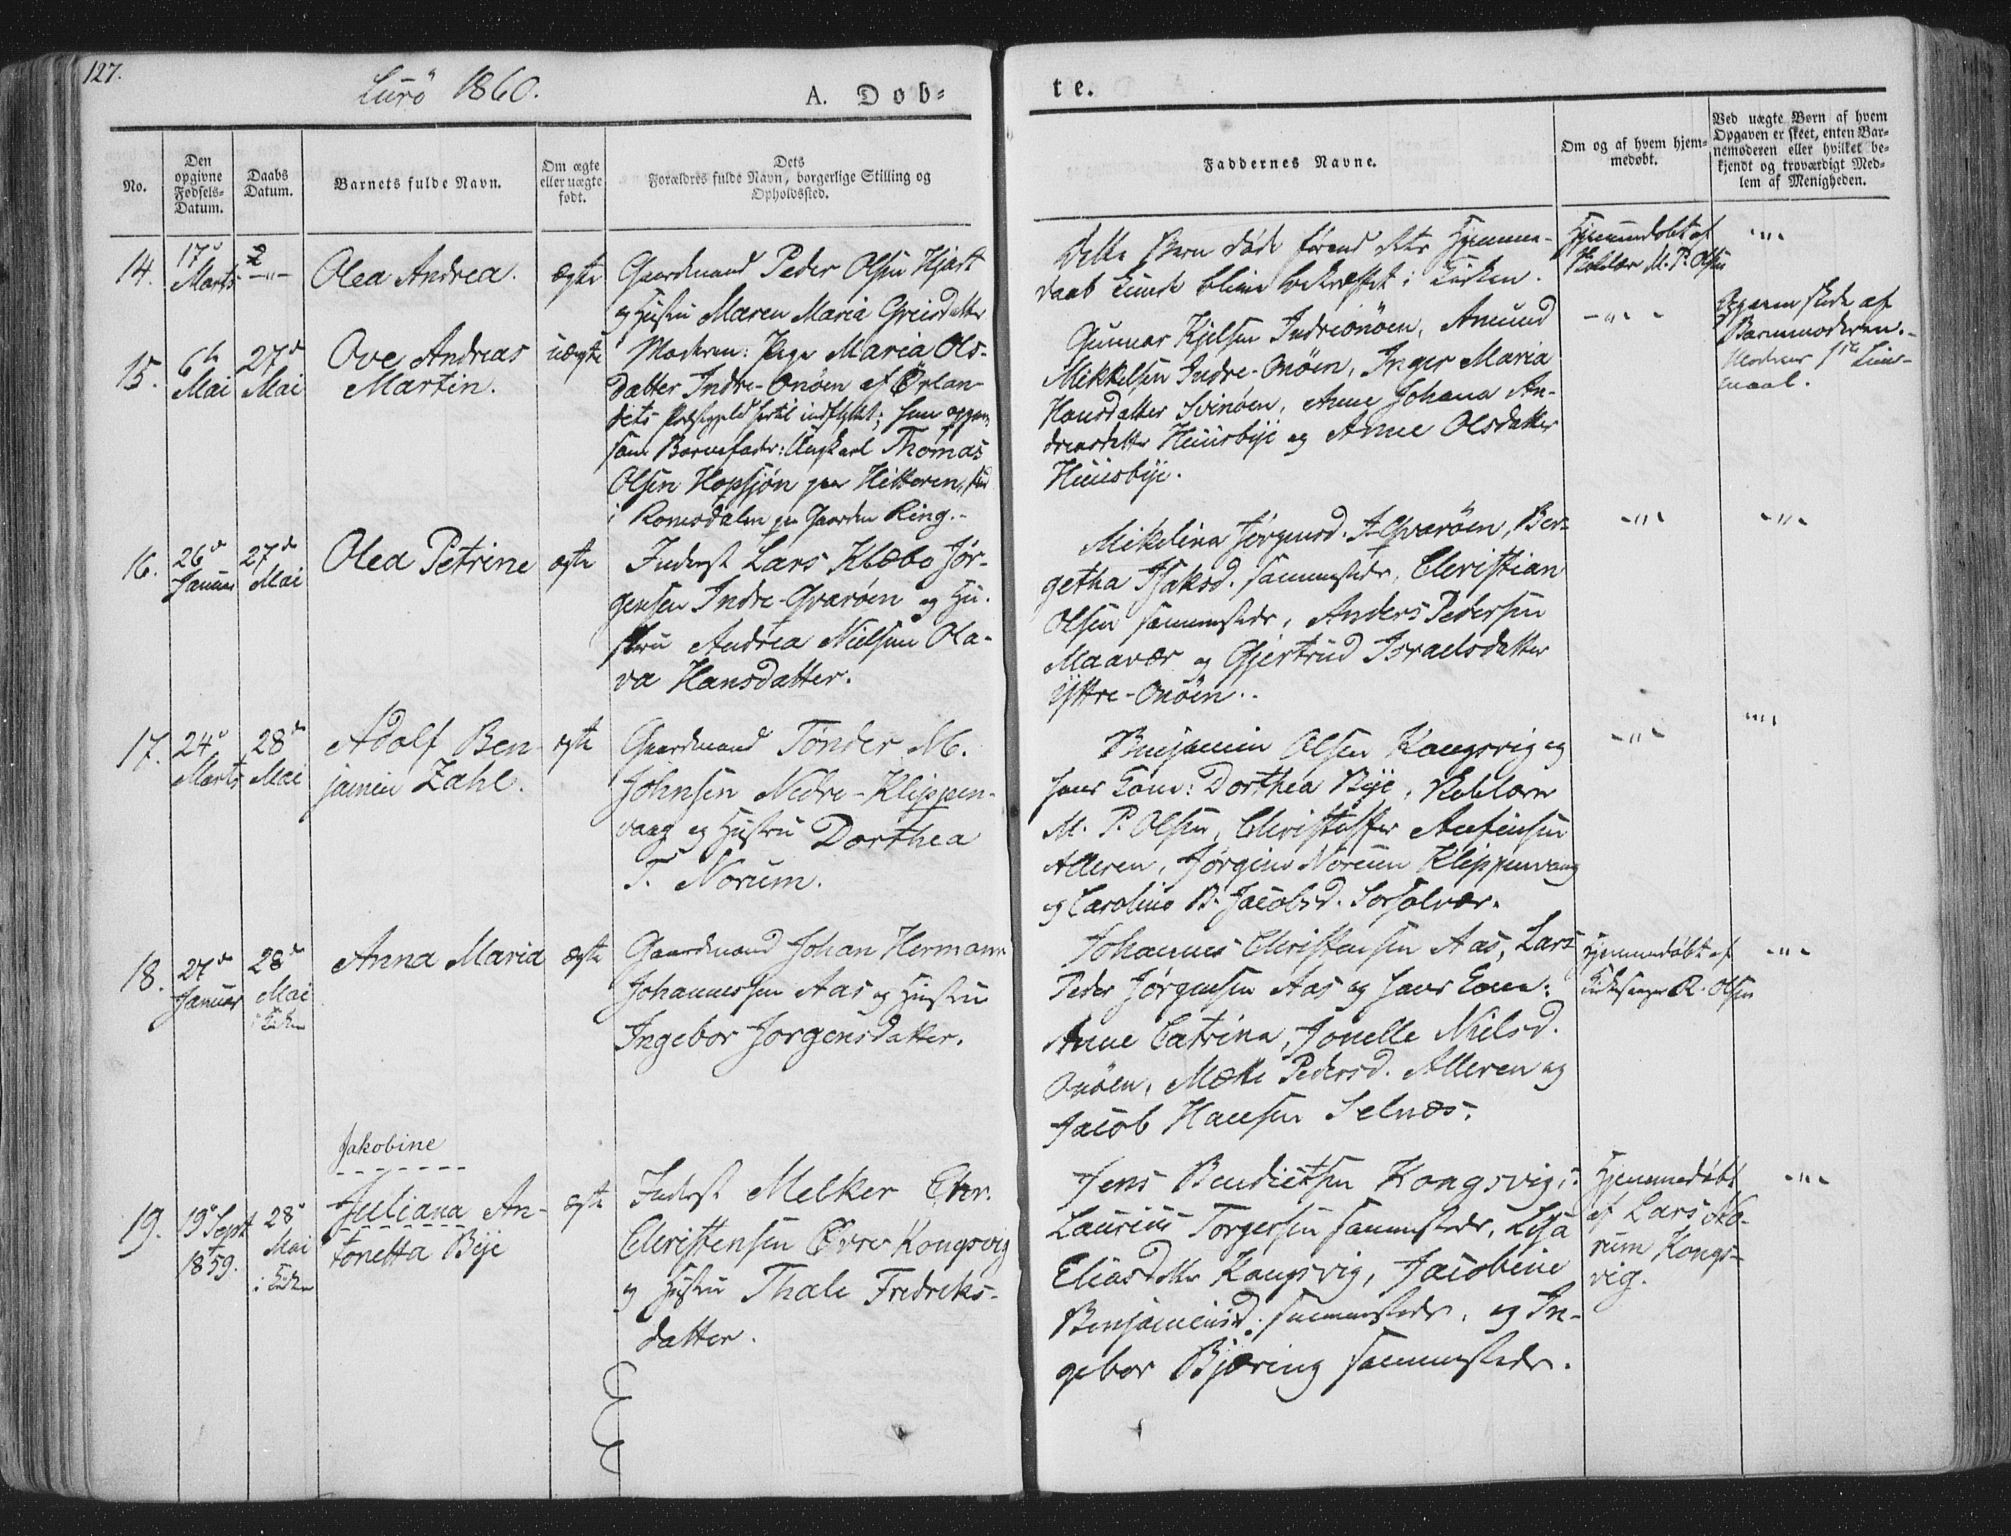 127.
Lurö 1860.
A. Døb=
te.
No.
Den
opgivne
Fødsels-
Datum.
Daabs
Datum.
Barnets fulde Navn.
Om ægte
eller uægte
født.
Dets
Forældres fulde Navn, borgerlige Stilling og
Opholdssted.
Faddernes Navne.
Om og af hvem hjem-
medøbt.
Ved uægte Børn af hvem
Opgaven er skeet, enten Bar-
nemoderen eller hvilket be-
kjendt og troværdigt Med-
lem af Menigheden.
14.
17
Marts
Olea Andrea.
ægte
Gaardmand Peder Olsen Hjart
og Hustru Maren Maria Greisdatter
Dette Barn døde førend dets Hjemme-
daab kunde blive bekræftet i Kirken.
Hjemmedøbt af
M. P. Olsen
15.
6te
Mai
27de
Mai
Ove Andreas
Martin.
uægte
Moderen: Pige Maria Ols-
datter Indre-Onøen af Ørlan-
dets Præstegjeld hertil indflyttet; hun opgav
som Barnefader: Ungkarl Thomas
Olsen Hopsjøn paa Hitteren,
i Romsdalen paa Gaarden Ring.-
Gunnar Kjelsen Indreonøen, Amund
Mikkelsen Indre-Onøen, Inger Maria
Hansdatter Svinøen, Anne Johana An-
dreasdatter Huusbye og Anne Olsdatter
Huusbye.
Opgaven skede af
Barnemoderen.-
Moderens 1ste Leier-
maal.
16.
26de
Januar
27de
Mai
Olea Petrine
ægte
Inderst Lars Klæbo Jør-
gensen Indre-Qvarøen og Hu-
stru Andrea Nielsine Ola-
va Hansdatter.
Mikelina Jørgensd. I-Qvarøen, Ber-
getha Isaksd. sammesteds, Christian
Olsen sammesteds, Anders Pedersen
Maavær og Gjertrud Israelsdatter
Yttre-Onøen.
17.
24
Marts
28de
Mai
Adolf Ben-
jamin Zahl.
ægte
Gaardmand Tønder M.
Johnsen Nedre-Klippen-
vaag og Hustru Dorthea
T. Norum.
Benjamin Olsen Kongsvig og
hans Kone: Dorthea Bye,
M. P. Olsen, Christoffer Anfinsen
Alleren, Jørgine Norum Klippenvaag
og Caroline B. Jacobsd. Sørsolvær.
18.
27de
Januar
28de
Mai
i Kirken
Anna Maria
ægte
Gaardmand Johan Hermann
Johannessen Aas og Hustru
Ingebor Jørgensdatter.
Johannes Christensen Aas, Lars
Peder Jørgensen Aas og hans Kone:
Anne Catrina, Jonelle Nielsd.
Onøen, Mette Pedersd. Alleren og
Jacob Hansen Selnæs.
Hjemmedøbt af
Kirkesanger R. Olsen
19.
19 Sept
1859.
28
Mai
i Kirken
Jakobine
Juliana An-
tonetta Bye
ægte
Inderst Melker Chr.
Christensen Øvre Kongsvig
og Hustru Thale Fredriks-
datter.
Jens Bendictsen Kongsvig,
Laurius Torgersen sammesteds, Lisa
Eliasdatter Kongsvig, Jacobine
Benjaminsd. sammesteds, og In-
gebor Bjøring sammesteds.
Hjemmedøbt
af Lars No-
rum Kongs-
vig.